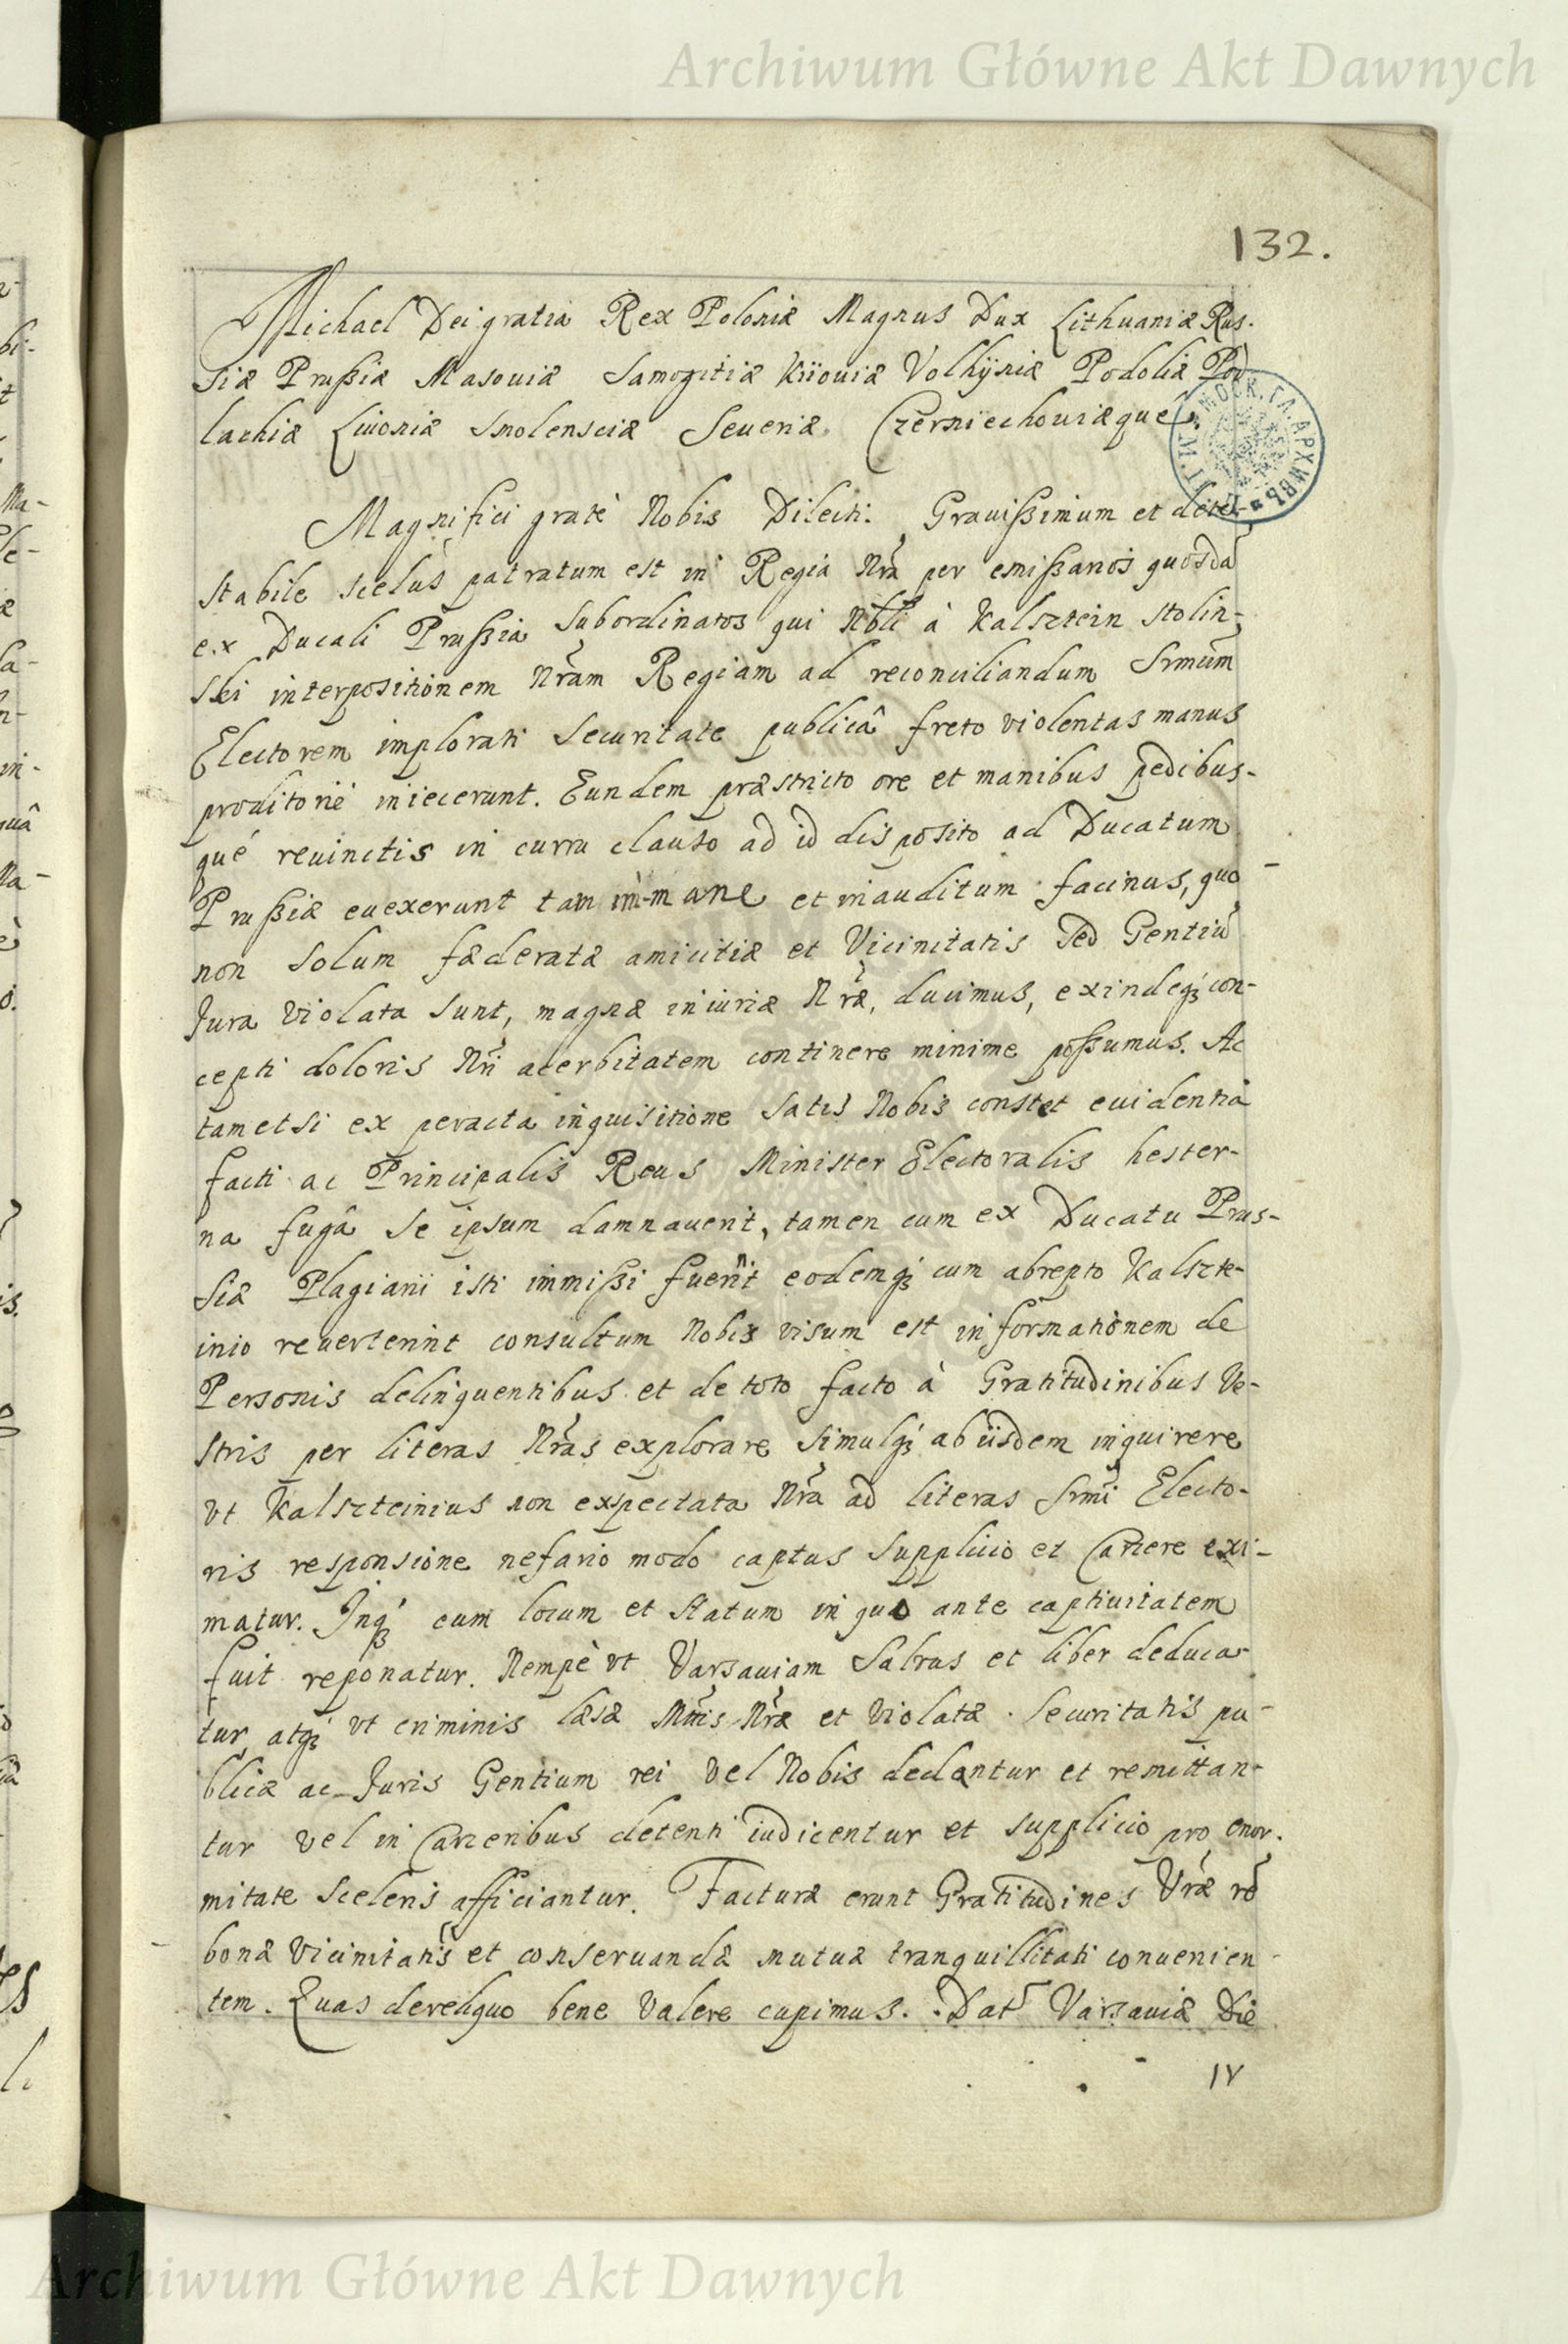 Archiwum Główne Akt Dawnych
132.
Michael Dei gratia Rex Poloniæ Magnus Dux Lithuaniæ Rus-
siæ Prußiæ Masouiæ Samogitiæ Kiiouiæ Volhÿniæ Podoliæ Pod
lachiæ Liuoniæ Smolensciæ Seueriæ Czerniechouiæque.
Magnifici gratè Nobis Dilecti. Grauißimum et dete-
stabile scelus patratum est in Regia Nrã per emißarios quosdã
ex Ducali Prußia subordinatos qui Nbli à Kalsztein Stolin-
ski interpositionem Nrãm Regiam ad reconciliandum Srmũm
Electorem implorati securitate publicâ freto violentas manus
proditoriè iniecerunt. Eundem præstricto ore et manibus pedibus-
què reuinctis in curru clauso ad id disposito ad Ducatum
Prußiæ euexerunt tam im-mane et inauditum facinus, quo
non solum fæderatæ amicitiæ et Vicinitatis sed Gentiũ
Jura violata sunt, magnæ iniuriæ Nræ, ducimus, exindeqꝫ con-
cepti doloris Nri acerbitatem continere minime poßumus. Ac
tametsi ex peracta inquisitione satis Nobis constet euidentia
facti ac Principalis Reus Minister Electoralis hester-
na fugâ se ipsum damnauerit, tamen cum ex Ducatu Prus-
siæ Plagiarii isti immißi fuerint eodemqꝫ cum abrepto Kalszte-
inio reuerterint consultum Nobis visum est informationem de
Personis delinquentibus et de toto facto à Gratitudinibus Ve-
stris per literas Nrãs explorare simulqꝫ ab iisdem inquirere
vt Kalszteinius non expectata Nrã ad literas Srmi Electo-
ris responsione nefario modo captus supplicio et Carcere exi-
matur. Inqꝫ eum locum et statum in quo ante captiuitatem
fuit reponatur. Nempè vt Varsauiam Saluus et liber deduca-
tur, atqꝫ vt criminis læsæ Mttis Nræ et violatæ securitatis pu-
blicæ ac Juris Gentium rei vel Nobis dedantur et remittan-
tur vel in Carceribus detenti iudicentur et supplicio pro enor-
mitate sceleris afficiantur. Facturæ erunt Gratitudines Vræ rẽ
bonæ Vicinitatis et conseruandæ mutuæ tranquillitati conuenien-
tem. Quas dereliquo bene Valere cupimus. Dat Varsauiæ Die
17
Archiwum Główne Akt Dawnych